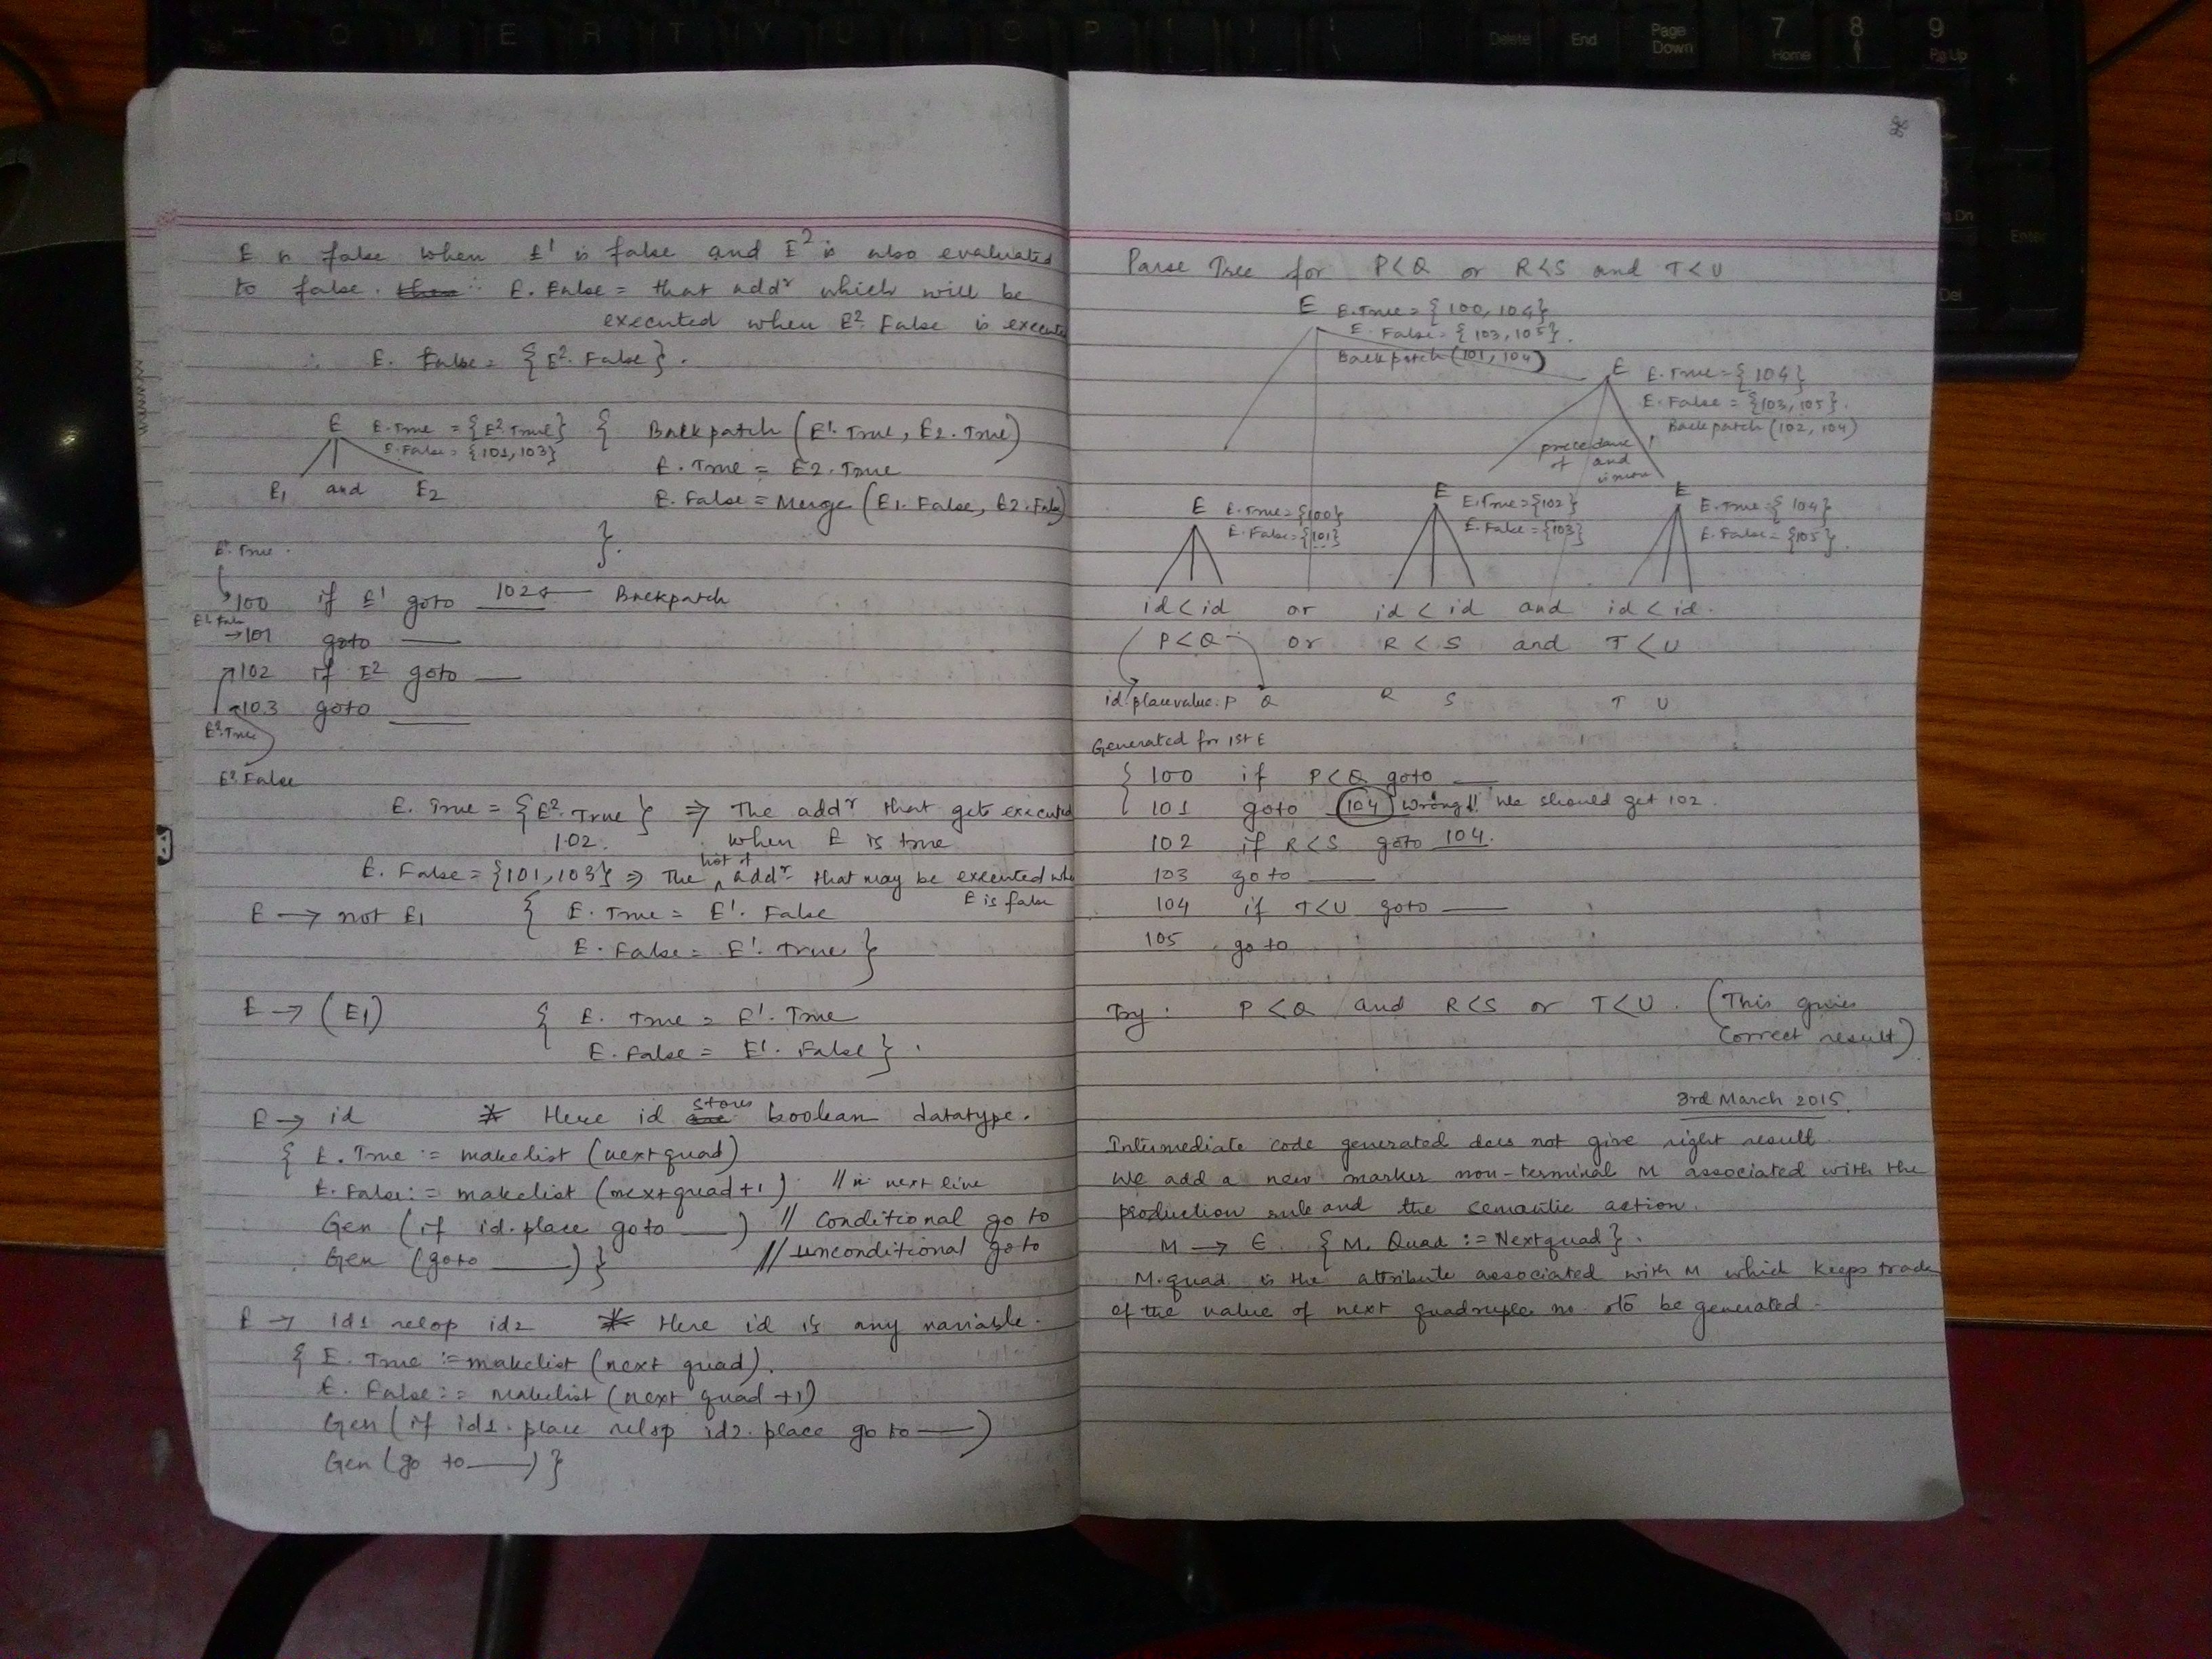 E is false when E' is false and E² is also evaluated
to false. E.False = that addr which will be
executed when E².False is execu
∴ E.False = {E².False}.
E E.True = {E².True} { Backpatch (E'.True, E2.True)
E.False = {101,103} E.True = E2.True
E1 and E2 E.False = Merge (E1.False, E2.False)
E'.True. }.
100 if E' goto 102 ← Backpatch
E'.False → 101 goto ___
102 if E² goto ___
E².True 103 goto ___
E².False
E.True = {E².True} ⇒ The addr that gets executed
102. when E is true
E.False = {101,103} ⇒ The list addr that may be executed wh
E is false
E → not E1 { E.True = E'.False
E.False = E'.True }
E → (E1) { E.True = E'.True
E.False = E'.False }.
E → id * Here id stores boolean datatype.
{ E.True := makelist (nextquad)
E.False := makelist (nextquad+1). // in next line
Gen (if id.place goto ___) // Conditional go to
Gen (goto ___) } // unconditional go to
E → id1 relop id2 * Here id is any variable.
{ E.True := makelist (next quad).
E.False := makelist (next quad +1)
Gen (if id1.place relop id2.place go to ___)
Gen (go to ___) }
Parse Tree for P<Q or R<S and T<U
E E.True = {100,104}
E.False = {103,105}.
Backpatch (101,104)
E E.True = {104}
E.False = {103,105}.
Backpatch (102,104)
precedence of and is more
E E.True = {100} E E.True = {102} E E.True = {104}
E.False = {101} E.False = {103} E.False = {105}.
id < id or id < id and id < id.
P < Q or R < S and T < U
id.place value: P Q R S T U
Generated for 1st E
{ 100 if P<Q goto ___
101 goto 104 wrong!! We should get 102.
102 if R<S goto 104.
103 goto ___.
104 if T<U goto ___
105 goto
Try: P<Q and R<S or T<U. (This gives
correct result).
3rd March 2015.
Intermediate code generated does not give right result
We add a new marker non-terminal M associated with the
production rule and the semantic action.
M → ∈ {M.Quad := Nextquad}.
M.quad is the attribute associated with M which keeps track
of the value of next quadruple no. to be generated.
Delete
End
Page Down
7
Home
8
9
Pg Up
Del
Enter
+